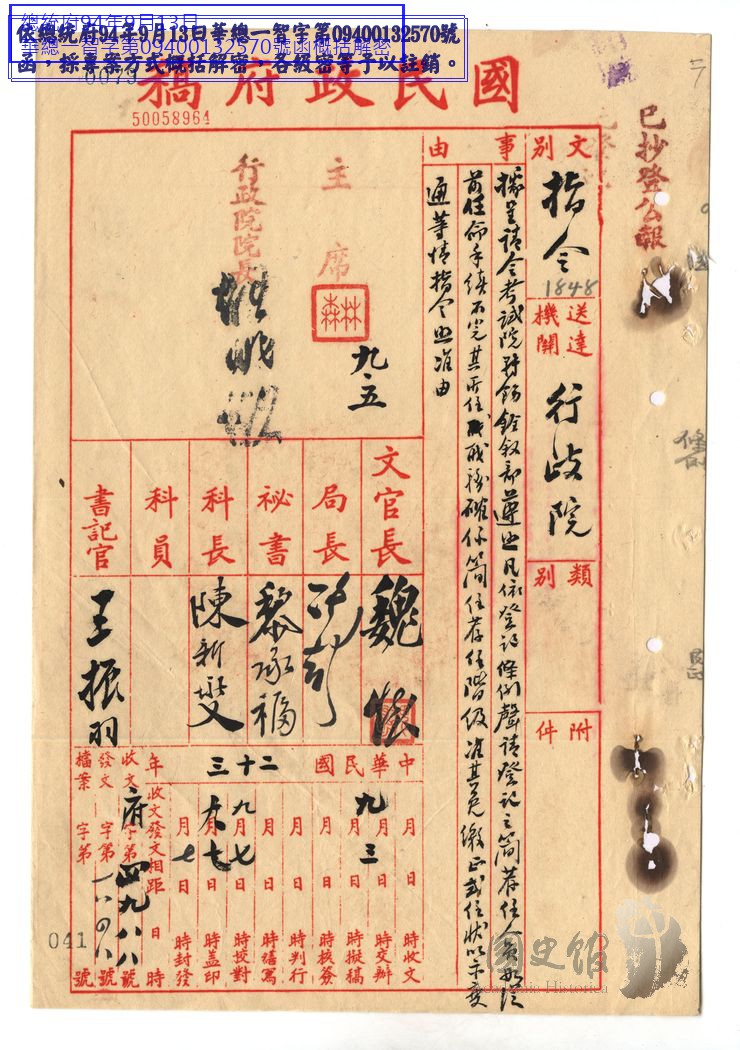 總統府94年9月13日
華總一智字第09400132570號函概括解密
依總統府94年9月13日華總一智字第09400132570號
函，採專案方式概括解密，各級密等予以註銷。
0079
國民政府稿
50058964
已抄登公報
文別
指令
1848
送達機關
行政院
類別
附件
事由
據呈請令考試院轉飭銓敘部遵照凡依登記條例聲請登記之簡荐任人員如從
前任命手續不完其所任職務確係簡任荐任階級准其免繳正式任狀以示變
通等情指令照准由
主席
林森
九·五
行政院院長
文官長
魏懷
局長
祕書
黎承福
科長
陳新燮
科員
書記官
王振羽
中華民國二十三年
月日時收文
九月三日時交辦
月日時擬稿
月日時核簽
月日時判行
月日時繕寫
九月七日時校對
月七日時蓋印
月七日時封發
收文發文相距日時
收文府字第四九八八號
發文字第號
檔案字第號
041
國史館
Academia Historica